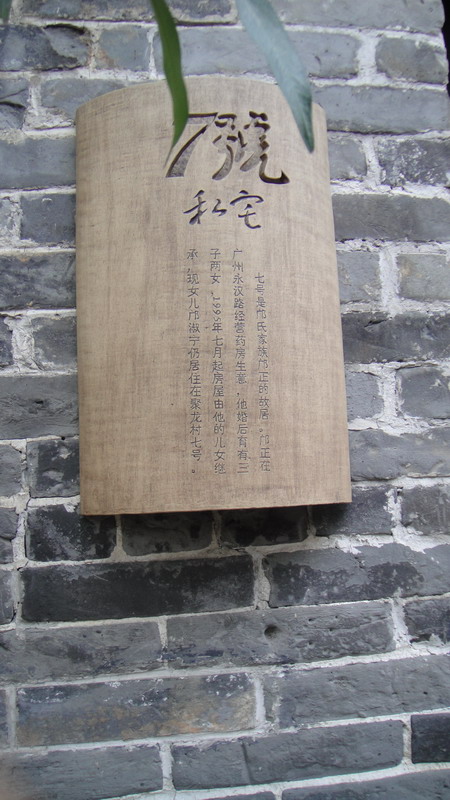 7號
私宅
七号是邝氏家族邝正的故居。邝正在
广州永汉路经营药房生意，他婚后育有三
子两女，1995年七月起房屋由他的儿女继
承，现女儿邝淑宁仍居住在聚龙村七号。